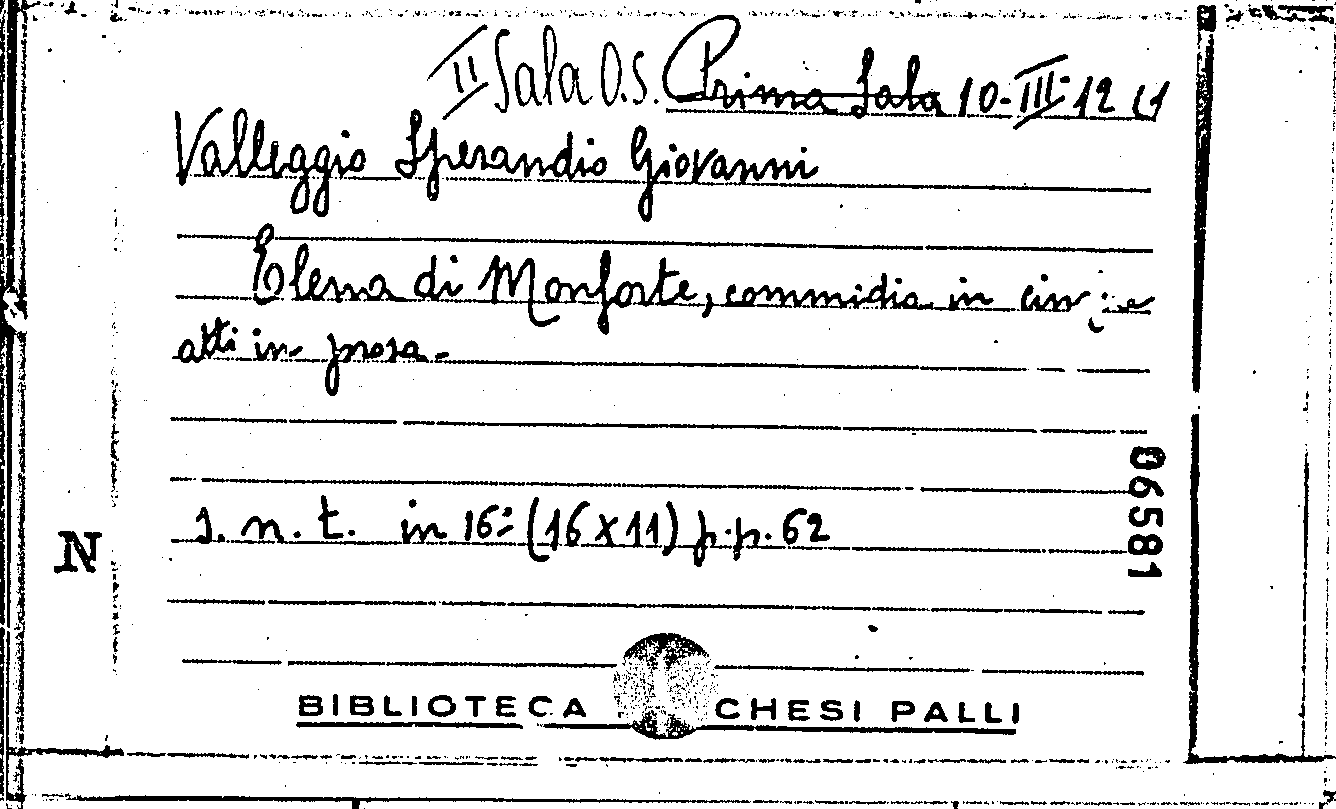 II Sala O.S. Prima Sala 10-III-12 (1
Valleggio Sperandio Giovanni
Elena di Monforte, commidia in
atti in prosa.
s. n. t. in 16º (16x11) p.p. 62
N
06581
BIBLIOTECA CHESI PALLI